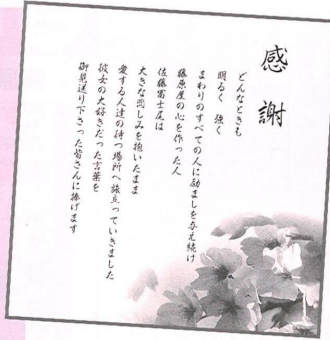 感謝
どんなときも
明るく 強く
まわりのすべての人に励ましを与え続け
藤原屋の心を作った人
佐藤冨士尾は
大きな悲しみを抱いたまま
愛する人達の待つ場所へ旅立っていきました
彼女の大好きだった言葉を
御見送り下さった皆さんに捧げます